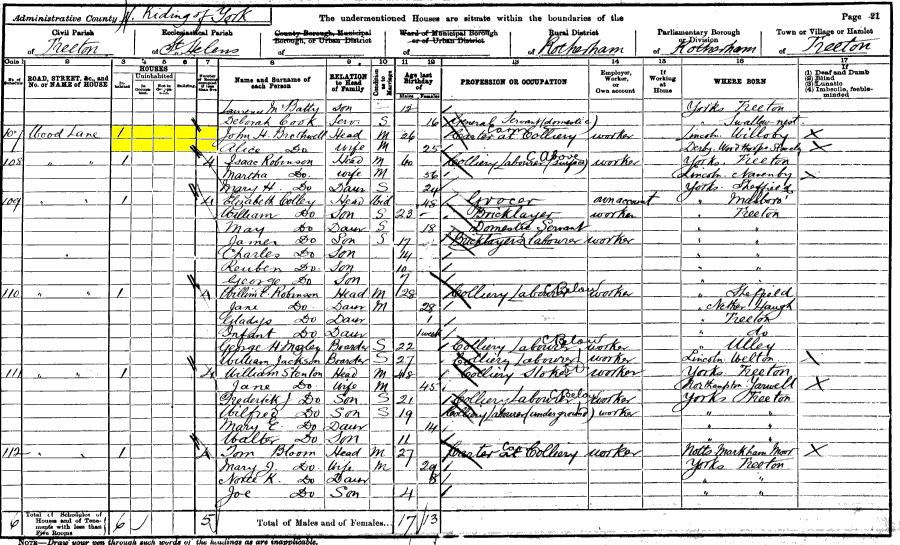 Administrative County W. Riding of York The undermentioned Houses are situate within the boundaries of the Page 21
Civil Parish Ecclesiastical Parish County Borough, Municipal Borough, or Urban District Ward of Municipal Borough or of Urban District Rural District Parliamentary Borough or Division Town or Village or Hamlet
of Treeton of St Helens of of of Rotherham of Rotherham of Treeton
Cols. 1 2 3 4 5 6 7 8 9 10 11 12 13 14 15 16 17
No. of Schedule ROAD, STREET, &c., and No. or NAME of HOUSE HOUSES Inhabited Uninhabited In Occupation Not in Occupation Building Number of Rooms occupied if less than five Name and Surname of each Person RELATION to Head of Family Condition as to Marriage Age last Birthday of Males Females PROFESSION OR OCCUPATION Employer, Worker, or Own account If Working at Home WHERE BORN If (1) Deaf and Dumb (2) Blind (3) Lunatic (4) Imbecile, feeble-minded
Do Son 12 Yorks Treeton
Deborah Cook Serv S 16 General Servant (domestic) " Swallownest
107 Wood Lane 1 John H. Head M 26 at Colliery worker Lincoln X
Alice Do Wife M 25 Derby X
108 " " 1 4 Isaac Robinson Head M 60 Colliery Labourer Above (surface) worker Yorks. Treeton
Martha Do. Wife M 56 Lincoln Navenby
Mary H. Do Daur S 24 Yorks Sheffield
109 " " 1 4 Elizabeth Colley Head Wid 48 Grocer own account "
William Do Son S 23 Bricklayer worker " Treeton
May Do Daur S 18 Domestic Servant " "
James Do Son S 17 Bricklayer's labourer worker " "
Charles Do Son 14 " "
Reuben Do Son 10 " "
George Do Son 7 " "
110 " " 1 4 Willm E. Robinson Head M 28 Colliery Labourer Below worker " Sheffield
Jane Do Daur M 28 " Nether Haugh
Gladys Do Daur 1 " Treeton
Infant Do Daur 1 week " do
George H. Boarder S 22 Colliery Labourer Below worker " Ulley
William Jackson Boarder S 27 Colliery Labourer worker Lincoln Welton
111 " " 1 4 William Stenton Head M 48 Colliery Stoker worker Yorks Treeton
Jane Do Wife M 45 Northampton Yarwell X
Frederick J. Do Son S 21 Colliery Labourer Below worker Yorks Treeton
Wilfred Do Son S 19 Colliery labourer (underground) worker " "
Mary E. Do Daur 14 " "
Walter Do Son 11 " "
112 " " 1 4 Tom Bloom Head M 27 at Colliery worker Notts Markham Moor X
Mary J. Do. Wife M 29 Yorks Treeton
K. Do Daur 8 " "
Joe Do Son 4 " "
6 Total of Schedules of Houses and of Tenements with less than Five Rooms 6 5 Total of Males and of Females 17 13
NOTE—Draw your pen through such words of the headings as are inapplicable.